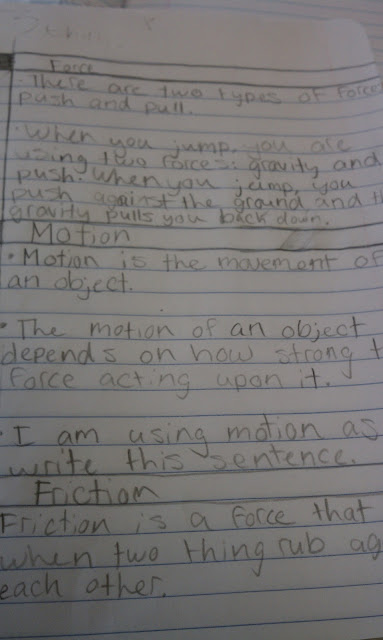 Force
· There are two types of forces
push and pull.
· When you jump, you are
using two forces: gravity and
push. When you jump, you
push against the ground and th
gravity pulls you back down.
Motion
· Motion is the movement of
an object.
· The motion of an object
depends on how strong t
force acting upon it.
· I am using motion as
write this sentence.
Friction
Friction is a force that
when two thing rub ag
each other.